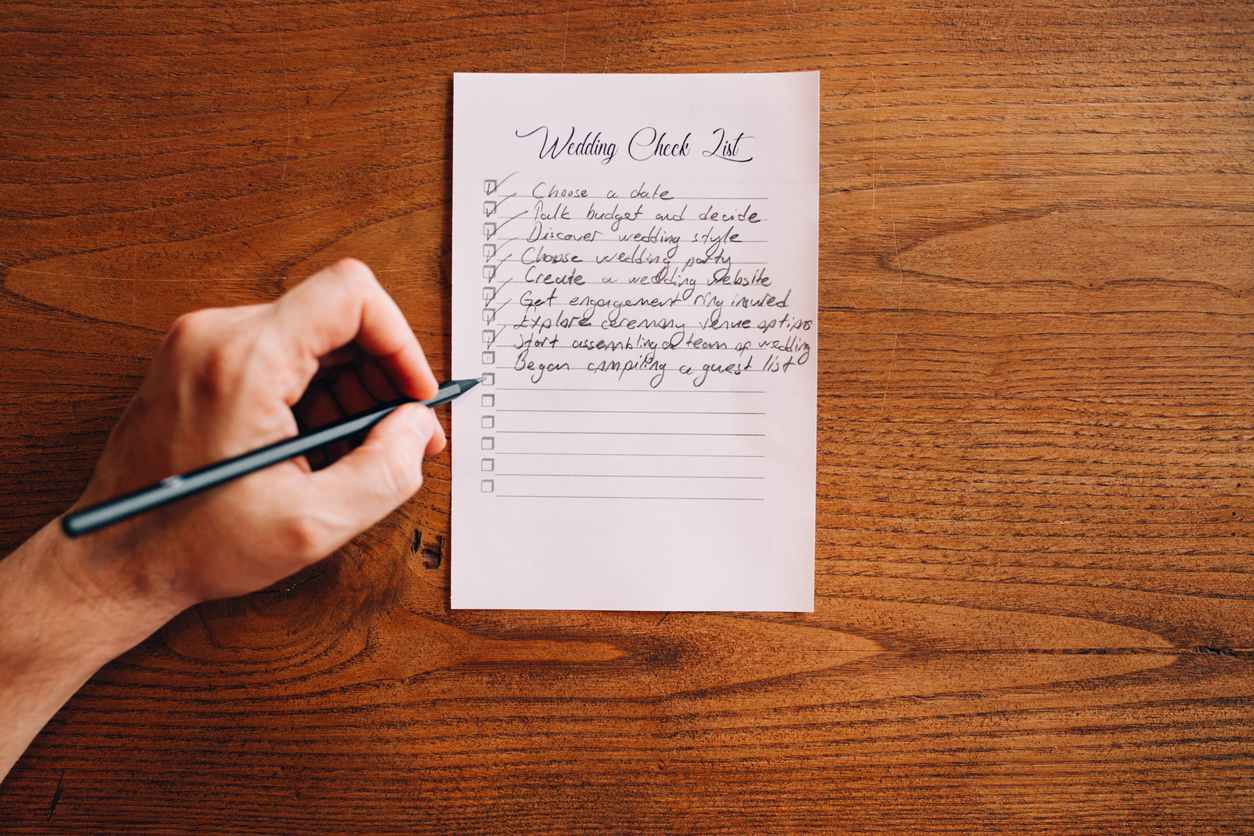 Wedding Check List
Choose a date
Talk budget and decide
Discover wedding style
Choose wedding party
Create a wedding website
Get engagement ring insured
Explore ceremony venue options
Start assembling a team of wedding
Began compiling a guest list